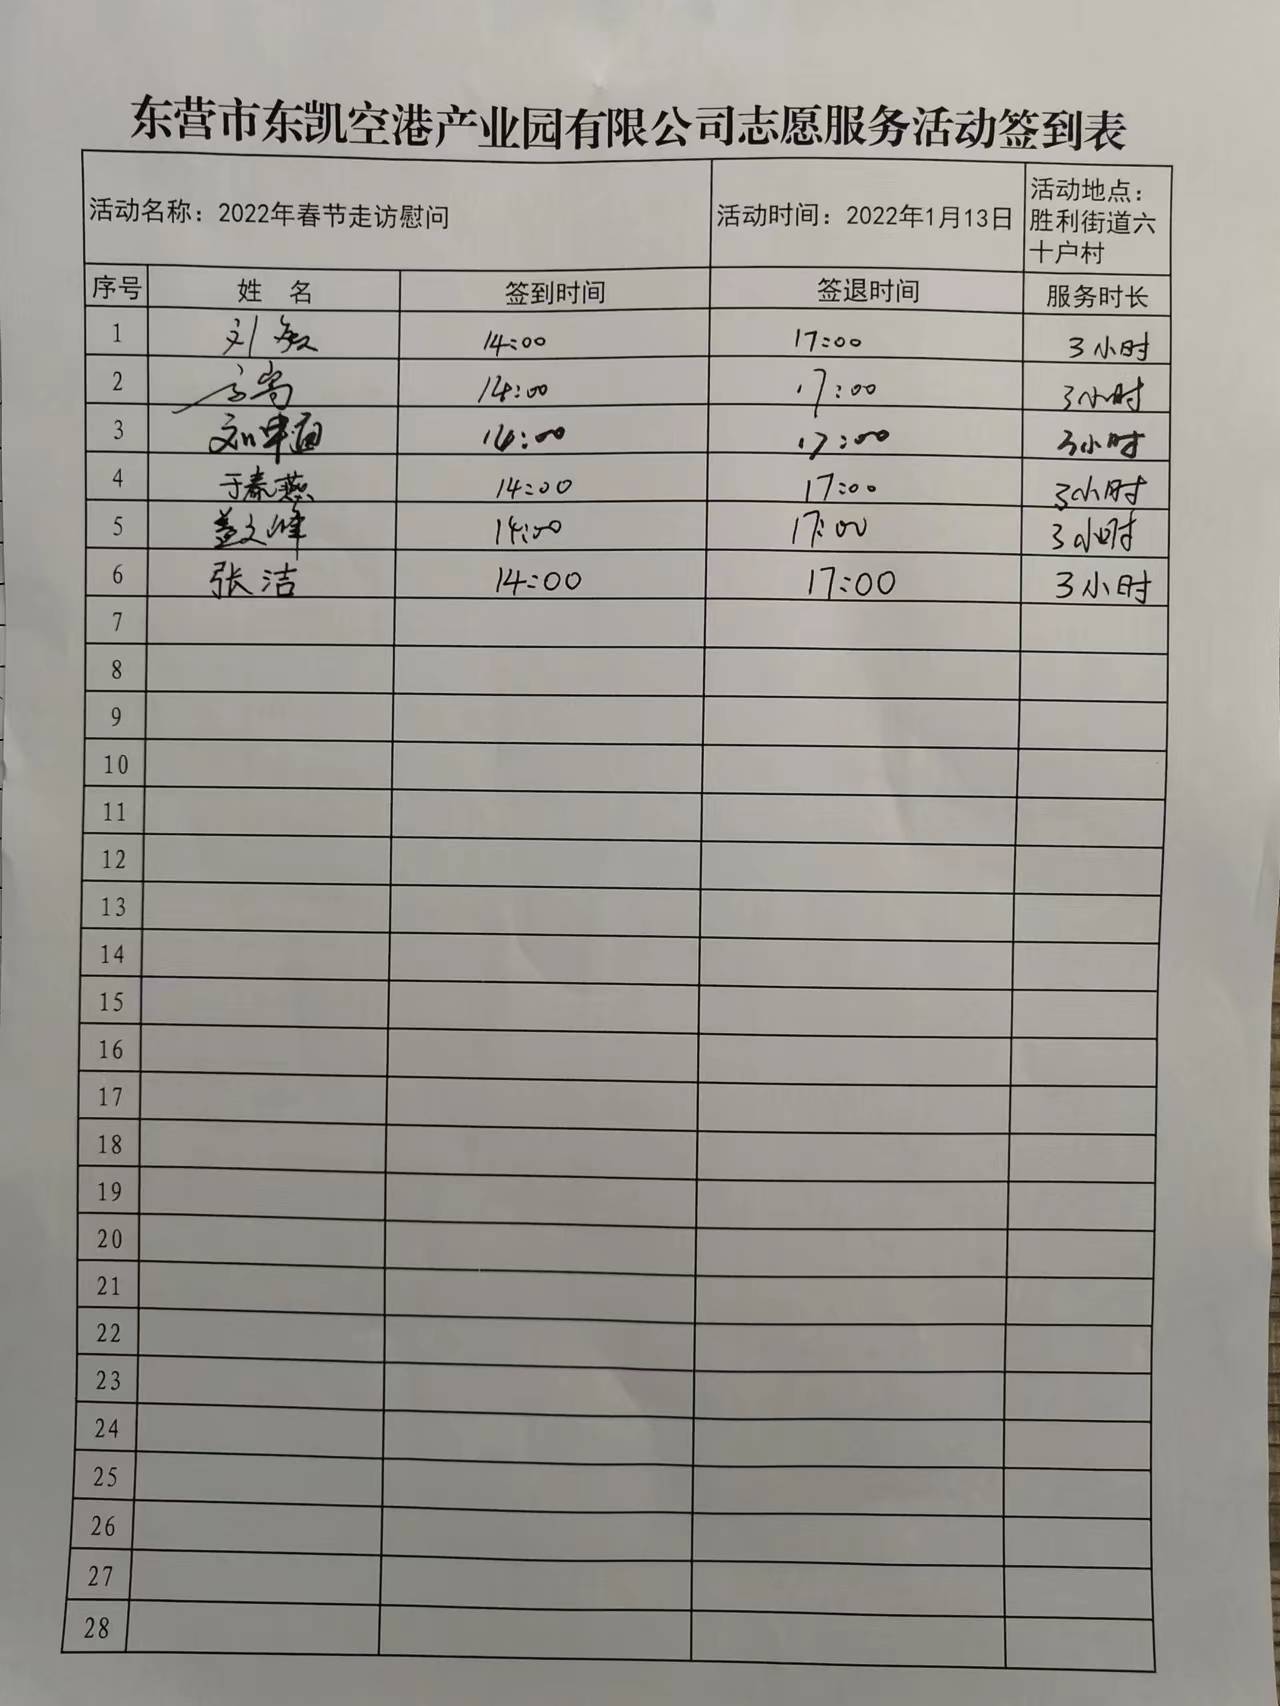 东营市东凯空港产业园有限公司志愿服务活动签到表
活动名称：2022年春节走访慰问 活动时间：2022年1月13日 活动地点：
胜利街道六
十户村
序号 姓 名 签到时间 签退时间 服务时长
1 刘敏 14:00 17:00 3小时
2 14:00 17:00 3小时
3 14:00 17:00 3小时
4 于春燕 14:00 17:00 3小时
5 盖文峰 14:00 17:00 3小时
6 张洁 14:00 17:00 3小时
7
8
9
10
11
12
13
14
15
16
17
18
19
20
21
22
23
24
25
26
27
28